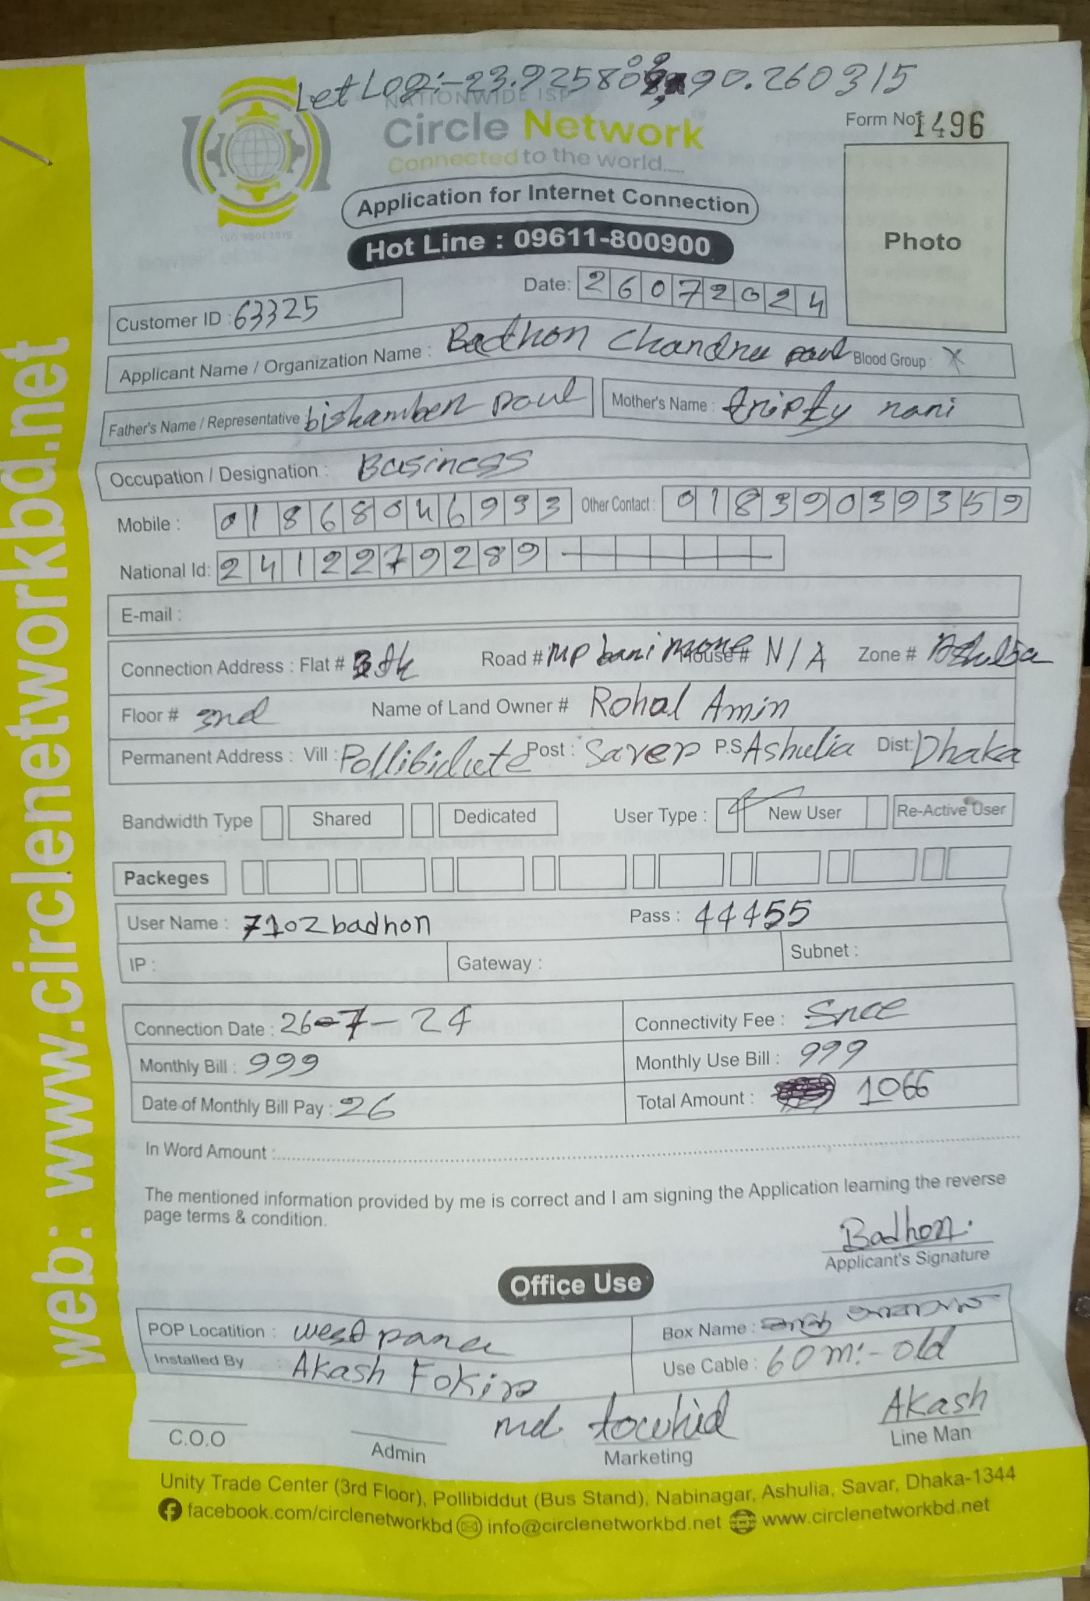 Let Log:- 23.925808, 90.260315
NATIONWIDE ISP
Circle Network
Connected to the world....
Form No 1496
Application for Internet Connection
Hot Line : 09611-800900
Photo
ISO 9001:2015
Date: 26072024
Customer ID : 63325
Applicant Name / Organization Name : Badhon Chandra paul Blood Group : X
Father's Name / Representative bishamber paul Mother's Name : tripty rani
Occupation / Designation : Business
Mobile : 01868046993 Other Contact : 01839039359
National Id: 2412279289
E-mail :
Connection Address : Flat # Road # MP bani House # N/A Zone # Ashulia
Floor # 2nd Name of Land Owner # Rohal Amin
Permanent Address : Vill : Pollibidute Post : Saver P.S Ashulia Dist: Dhaka
Bandwidth Type Shared Dedicated User Type : New User Re-Active User
Packeges
User Name : 7102badhon Pass : 44455
IP : Gateway : Subnet :
Connection Date : 26-7-24 Connectivity Fee :
Monthly Bill : 999 Monthly Use Bill : 999
Date of Monthly Bill Pay : 26 Total Amount : 1066
In Word Amount :
The mentioned information provided by me is correct and I am signing the Application learning the reverse
page terms & condition.
Badhon.
Applicant's Signature
Office Use
POP Locatition : west para Box Name :
Installed By : Akash Fokir Use Cable : 60m:- old
md. towhid Akash
C.O.O Admin Marketing Line Man
Unity Trade Center (3rd Floor), Pollibiddut (Bus Stand), Nabinagar, Ashulia, Savar, Dhaka-1344
facebook.com/circlenetworkbd info@circlenetworkbd.net www.circlenetworkbd.net
web: www.circlenetworkbd.net